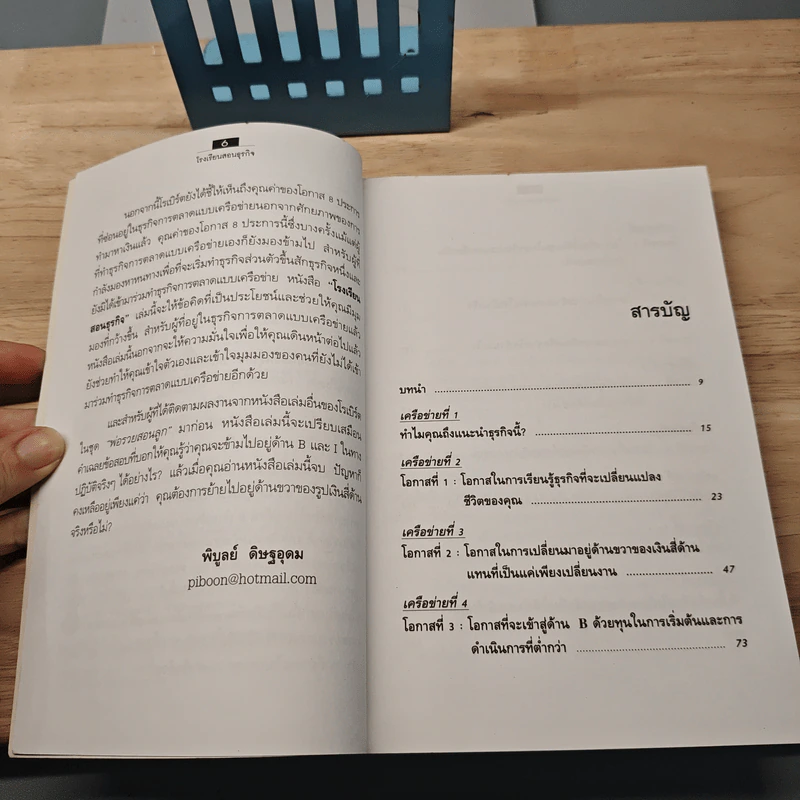 ๖
โรงเรียนสอนธุรกิจ
นอกจากนี้โรเบิร์ตยังได้ชี้ให้เห็นถึงคุณค่าของโอกาส 8 ประการ
ที่ซ่อนอยู่ในธุรกิจการตลาดแบบเครือข่ายนอกจากศักยภาพของการ
ทำมาหาเงินแล้ว คุณค่าของโอกาส 8 ประการนี้ซึ่งบางครั้งแม้แต่ผู้
ที่ทำธุรกิจการตลาดแบบเครือข่ายเองก็ยังมองข้ามไป สำหรับผู้ที่
กำลังมองหาหนทางเพื่อที่จะเริ่มทำธุรกิจส่วนตัวขึ้นสักธุรกิจหนึ่งและ
ยังมิได้เข้ามาร่วมทำธุรกิจการตลาดแบบเครือข่าย หนังสือ "โรงเรียน
สอนธุรกิจ" เล่มนี้จะให้ข้อคิดที่เป็นประโยชน์และช่วยให้คุณมีมุม
มองที่กว้างขึ้น สำหรับผู้ที่อยู่ในธุรกิจการตลาดแบบเครือข่ายแล้ว
หนังสือเล่มนี้นอกจากจะให้ความมั่นใจเพื่อให้คุณเดินหน้าต่อไปแล้ว
ยังช่วยทำให้คุณเข้าใจตัวเองและเข้าใจมุมมองของคนที่ยังไม่ได้เข้า
มาร่วมทำธุรกิจการตลาดแบบเครือข่ายอีกด้วย
และสำหรับผู้ที่ได้ติดตามผลงานจากหนังสือเล่มอื่นของโรเบิร์ต
ในชุด "พ่อรวยสอนลูก" มาก่อน หนังสือเล่มนี้จะเปรียบเสมือน
คำเฉลยข้อสอบที่บอกให้คุณรู้ว่าคุณจะข้ามไปอยู่ด้าน B และ I ในทาง
ปฏิบัติจริงๆ ได้อย่างไร? แล้วเมื่อคุณอ่านหนังสือเล่มนี้จบ ปัญหาก็
คงเหลืออยู่เพียงแค่ว่า คุณต้องการย้ายไปอยู่ด้านขวาของรูปเงินสี่ด้าน
จริงหรือไม่?
พิบูลย์ ดิษฐอุดม
piboon@hotmail.com
สารบัญ
บทนำ ........................ 9
เครือข่ายที่ 1
ทำไมคุณถึงแนะนำธุรกิจนี้? ........................ 15
เครือข่ายที่ 2
โอกาสที่ 1 : โอกาสในการเรียนรู้ธุรกิจที่จะเปลี่ยนแปลง
ชีวิตของคุณ ........................ 23
เครือข่ายที่ 3
โอกาสที่ 2 : โอกาสในการเปลี่ยนมาอยู่ด้านขวาของเงินสี่ด้าน
แทนที่เป็นแค่เพียงเปลี่ยนงาน ........................ 47
เครือข่ายที่ 4
โอกาสที่ 3 : โอกาสที่จะเข้าสู่ด้าน B ด้วยทุนในการเริ่มต้นและการ
ดำเนินการที่ต่ำกว่า ........................ 73